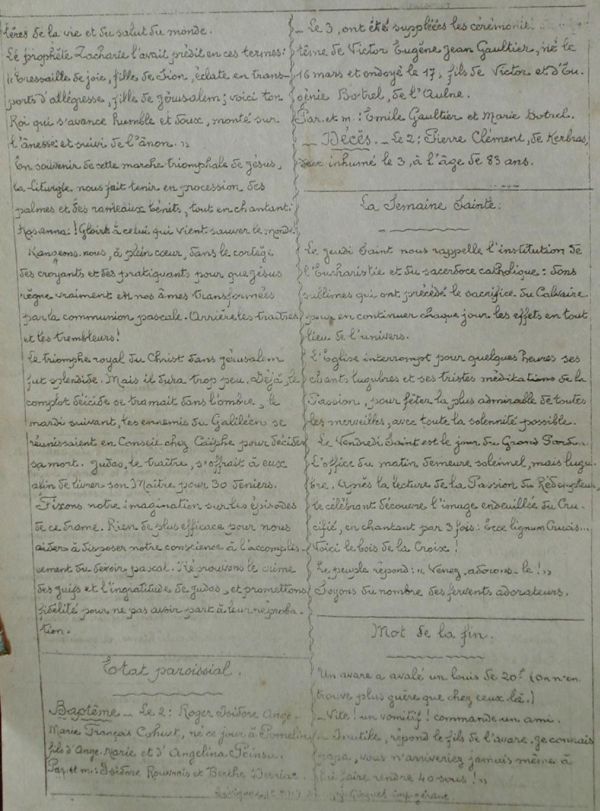 tères de la vie et du salut du monde.
Le prophète Zacharie l'avait prédit en ces termes:
"Tressaille de joie, fille de Sion, éclate en trans-
ports d'allégresse, fille de Jérusalem; voici ton
Roi qui s'avance humble et doux, monté sur
l'ânesse et suivi de l'ânon."
En souvenir de cette marche triomphale de Jésus,
la Liturgie nous fait tenir en procession des
palmes et des rameaux bénits, tout en chantant:
Hosanna! Gloire à celui qui vient sauver le monde
Rangeons-nous, à plein cœur, dans le cortège
des croyants et des pratiquants pour que Jésus
règne vraiment en nos âmes transformées
par la communion pascale. Arrière les traîtres
et les trembleurs!
Le triomphe royal du Christ dans Jérusalem
fut splendide. Mais il dura trop peu. Déjà, le
complot déicide se tramait dans l'ombre, le
mardi suivant, les ennemis du Galiléen se
réunissaient en Conseil chez Caïphe pour décider
sa mort. Judas, le traître, s'offrait à eux
afin de livrer son Maître pour 30 deniers.
Fixons notre imagination sur les épisodes
de ce drame. Rien de plus efficace pour nous
aider à disposer notre conscience à l'accomplis-
sement du devoir pascal. Réprouvons le crime
des juifs et l'ingratitude de Judas, et promettons
fidélité pour ne pas avoir part à leur réproba-
tion.
Etat paroissial.
Baptême _ Le 2: Roger Isidore Ange-
Marie François Cohuet, né ce jour à
fils d'Ange-Marie et d'Angelina
Par. et m: Isidore et Berthe
_ Le 3, ont été suppléées les cérémonies
tême de Victor Eugène Jean Gaultier, né le
16 mars et ondoyé le 17, fils de Victor et d'Eu-
génie Botrel, de l'Aulne.
Par. et m: Emile Gaultier et Marie Botrel.
_ Décès. _ Le 2: Pierre Clément, de Kerbras,
inhumé le 3, à l'âge de 83 ans.
La Semaine Sainte.
Le Jeudi Saint nous rappelle l'institution de
l'Eucharistie et du sacerdoce catholique: dons
sublimes qui ont précédé le sacrifice du Calvaire
pour en continuer chaque jour les effets en tout
lieu de l'univers.
L'Eglise interrompt pour quelques heures ses
chants lugubres et ses tristes méditations de la
Passion, pour fêter la plus admirable de toutes
les merveilles, avec toute la solennité possible.
Le Vendredi Saint est le jour du Grand Pardon.
L'office du matin demeure solennel, mais lugu-
bre. Après la lecture de la Passion du Rédempteur,
le célébrant découvre l'image endeuillée du Cru-
cifié, en chantant par 3 fois: Ecce lignum Crucis...
Voici le bois de la Croix!
Le peuple répond: "Venez, adorons-le!"
Soyons du nombre des fervents adorateurs.
Mot de la fin.
Un avare a avalé un louis de 20f (on n'en
trouve plus guère que chez ceux-là.)
_ Vite! un vomitif! commande un ami.
_ Inutile, répond le fils de l'avare, je connais
papa, vous n'arriveriez jamais même à
lui faire rendre 40 sous!"